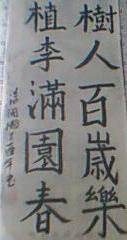 樹人百歲樂
植李滿園春